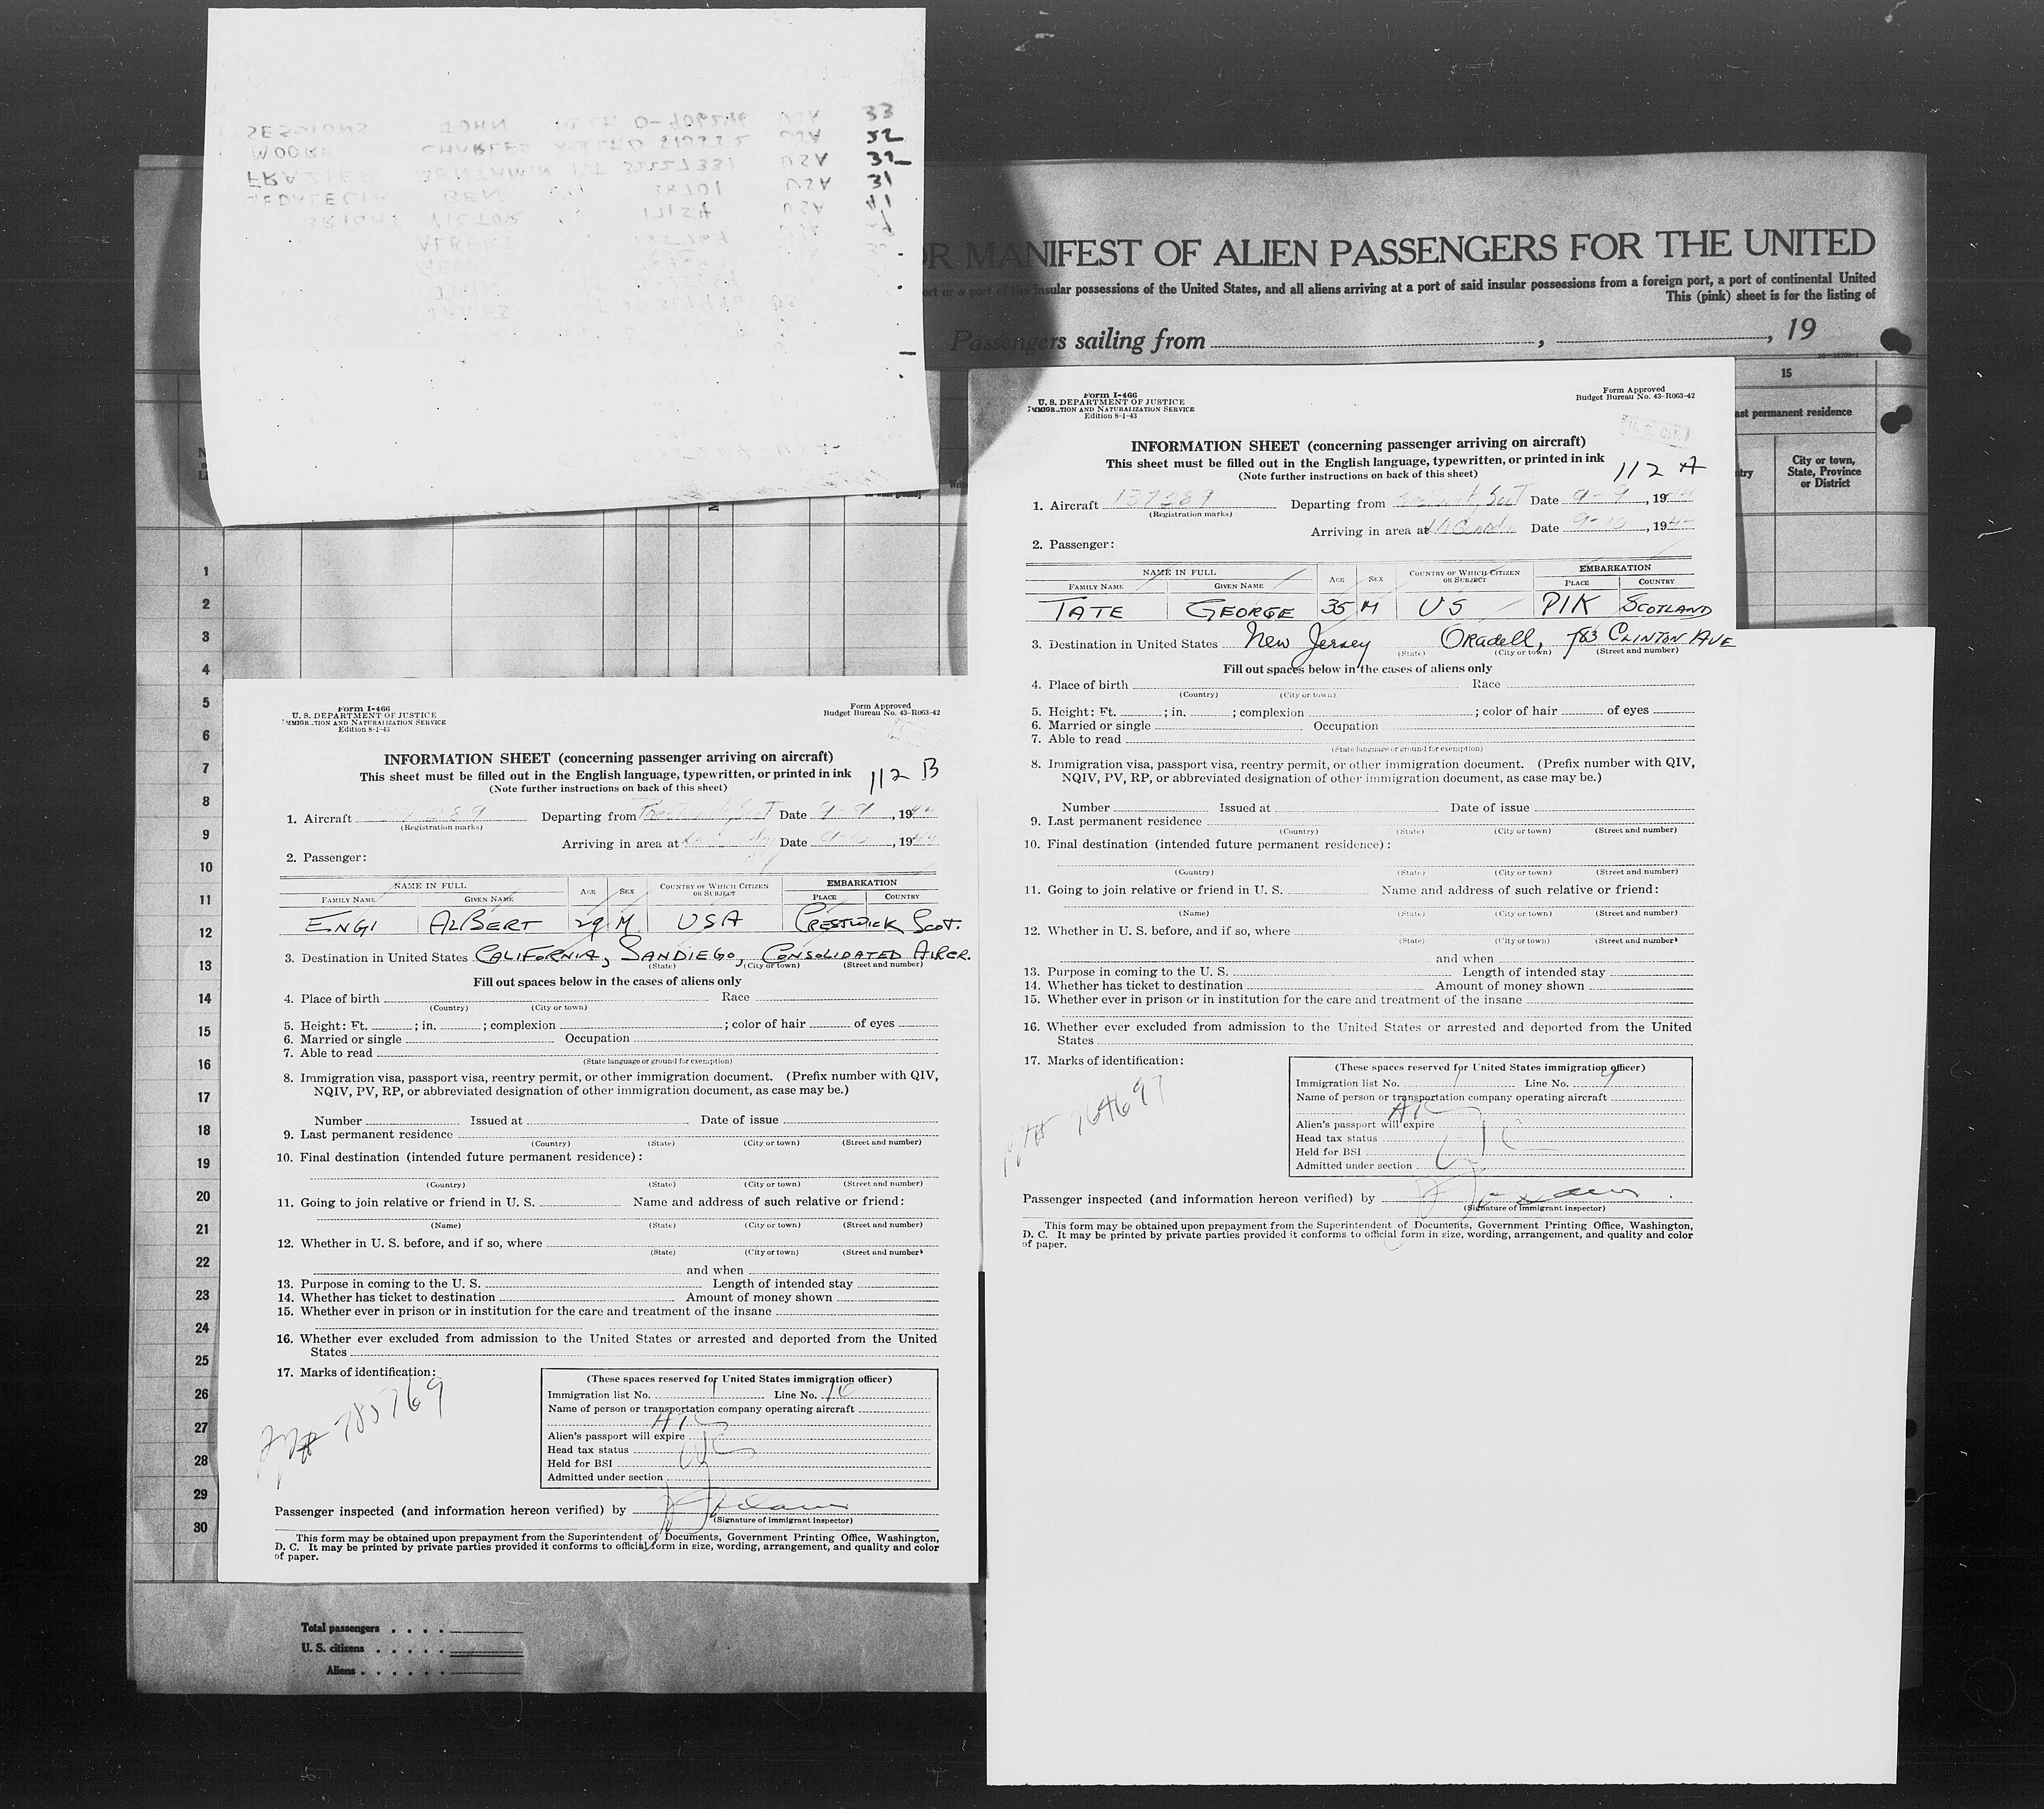 SESSIONS JOHN O-906246 USA 33
MOORE CHARLES USA 22
FRAZIER BENJAMIN 32227331 USA 32
BEN 38701 USA 31
BRIGHT VICTOR 17154 USA 41
ALBERT
JOHN
JAMES
OR MANIFEST OF ALIEN PASSENGERS FOR THE UNITED
insular possessions of the United States, and all aliens arriving at a port of said insular possessions from a foreign port, a port of continental United
This (pink) sheet is for the listing of
Passengers sailing from , , 19
15
ast permanent residence
City or town, State, Province or District
1
2
3
4
5
6
7
8
9
10
11
12
13
14
15
16
17
18
19
20
21
22
23
24
25
26
27
28
29
30
Total passengers . . . .
U. S. citizens . . . . .
Aliens . . . . . .
Form I-466
U. S. DEPARTMENT OF JUSTICE
IMMIGRATION AND NATURALIZATION SERVICE
Edition 8-1-43
Form Approved
Budget Bureau No. 43-R063-42
INFORMATION SHEET (concerning passenger arriving on aircraft)
This sheet must be filled out in the English language, typewritten, or printed in ink
(Note further instructions on back of this sheet)
112 B
1. Aircraft Departing from Date 9-9, 1944
(Registration marks)
Arriving in area at Date , 1944
2. Passenger:
NAME IN FULL AGE SEX COUNTRY OF WHICH CITIZEN OR SUBJECT EMBARKATION
FAMILY NAME GIVEN NAME PLACE COUNTRY
ENGI ALBERT 29 M USA PRESTWICK SCOT.
3. Destination in United States CALIFORNIA, SANDIEGO, CONSOLIDATED AIRCR.
(State) (City or town) (Street and number)
Fill out spaces below in the cases of aliens only
4. Place of birth Race
(Country) (City or town)
5. Height: Ft. ; in. ; complexion ; color of hair of eyes
6. Married or single Occupation
7. Able to read
(State language or ground for exemption)
8. Immigration visa, passport visa, reentry permit, or other immigration document. (Prefix number with QIV,
NQIV, PV, RP, or abbreviated designation of other immigration document, as case may be.)
Number Issued at Date of issue
9. Last permanent residence
(Country) (State) (City or town) (Street and number)
10. Final destination (intended future permanent residence):
(Country) (State) (City or town) (Street and number)
11. Going to join relative or friend in U. S. Name and address of such relative or friend:
(Name) (State) (City or town) (Street and number)
12. Whether in U. S. before, and if so, where
(State) (City or town) (Street and number)
and when
13. Purpose in coming to the U. S. Length of intended stay
14. Whether has ticket to destination Amount of money shown
15. Whether ever in prison or in institution for the care and treatment of the insane
16. Whether ever excluded from admission to the United States or arrested and deported from the United
States
17. Marks of identification:
785769
(These spaces reserved for United States immigration officer)
Immigration list No. 1 Line No. 10
Name of person or transportation company operating aircraft
ATC
Alien's passport will expire
Head tax status
Held for BSI
Admitted under section
Passenger inspected (and information hereon verified) by
(Signature of immigrant inspector)
This form may be obtained upon prepayment from the Superintendent of Documents, Government Printing Office, Washington,
D. C. It may be printed by private parties provided it conforms to official form in size, wording, arrangement, and quality and color
of paper.
Form I-466
U. S. DEPARTMENT OF JUSTICE
IMMIGRATION AND NATURALIZATION SERVICE
Edition 8-1-43
Form Approved
Budget Bureau No. 43-R063-42
INFORMATION SHEET (concerning passenger arriving on aircraft)
This sheet must be filled out in the English language, typewritten, or printed in ink
(Note further instructions on back of this sheet)
112 A
1. Aircraft 137289 Departing from Date 9-9, 1944
(Registration marks)
Arriving in area at Date , 1944
2. Passenger:
NAME IN FULL AGE SEX COUNTRY OF WHICH CITIZEN OR SUBJECT EMBARKATION
FAMILY NAME GIVEN NAME PLACE COUNTRY
TATE GEORGE 35 M US PIK SCOTLAND
3. Destination in United States New Jersey Oradell, 783 CLINTON AVE
(State) (City or town) (Street and number)
Fill out spaces below in the cases of aliens only
4. Place of birth Race
(Country) (City or town)
5. Height: Ft. ; in. ; complexion ; color of hair of eyes
6. Married or single Occupation
7. Able to read
(State language or ground for exemption)
8. Immigration visa, passport visa, reentry permit, or other immigration document. (Prefix number with QIV,
NQIV, PV, RP, or abbreviated designation of other immigration document, as case may be.)
Number Issued at Date of issue
9. Last permanent residence
(Country) (State) (City or town) (Street and number)
10. Final destination (intended future permanent residence):
(Country) (State) (City or town) (Street and number)
11. Going to join relative or friend in U. S. Name and address of such relative or friend:
(Name) (State) (City or town) (Street and number)
12. Whether in U. S. before, and if so, where
(State) (City or town) (Street and number)
and when
13. Purpose in coming to the U. S. Length of intended stay
14. Whether has ticket to destination Amount of money shown
15. Whether ever in prison or in institution for the care and treatment of the insane
16. Whether ever excluded from admission to the United States or arrested and deported from the United
States
17. Marks of identification:
764697
(These spaces reserved for United States immigration officer)
Immigration list No. 1 Line No. 9
Name of person or transportation company operating aircraft
ATC
Alien's passport will expire
Head tax status
Held for BSI
Admitted under section
Passenger inspected (and information hereon verified) by
(Signature of immigrant inspector)
This form may be obtained upon prepayment from the Superintendent of Documents, Government Printing Office, Washington,
D. C. It may be printed by private parties provided it conforms to official form in size, wording, arrangement, and quality and color
of paper.